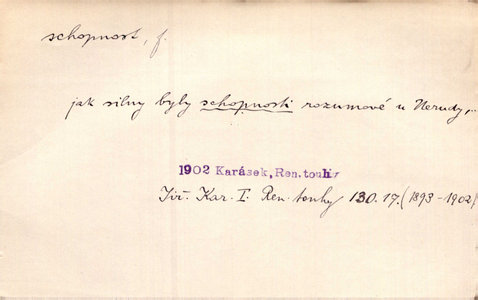 schopnost, f.
jak silny byly schopnosti rozumové u Nerudy,..
1902 Karásek, Ren. touhy
Jiř. Kar. I. Ren. touhy 130.17. (1893-1902)